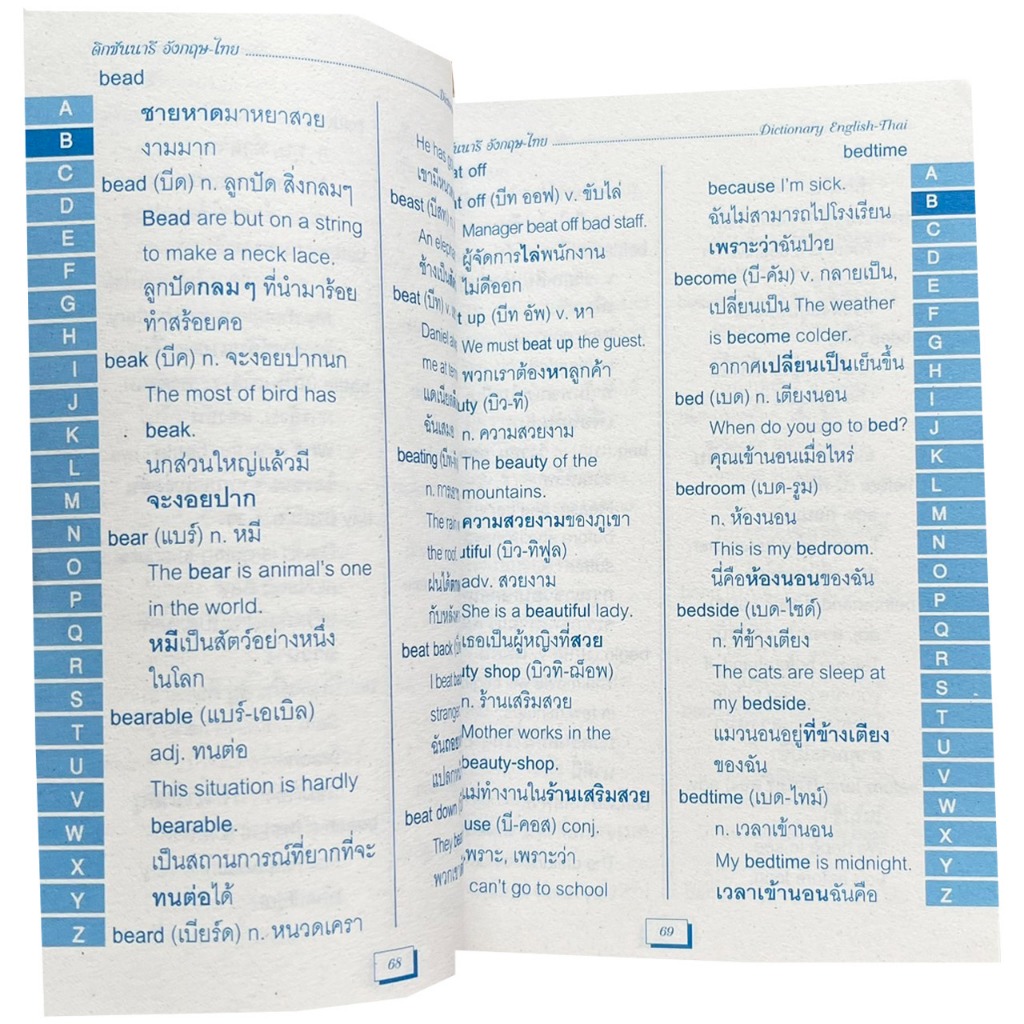 ดิกชันนารี อังกฤษ-ไทย
bead
A
B
C
D
E
F
G
H
I
J
K
L
M
N
O
P
Q
R
S
T
U
V
W
X
Y
Z
ชายหาดมาหยาสวย
งามมาก
bead (บีด) n. ลูกปัด สิ่งกลมๆ
Bead are but on a string
to make a neck lace.
ลูกปัดกลมๆ ที่นำมาร้อย
ทำสร้อยคอ
beak (บีค) n. จะงอยปากนก
The most of bird has
beak.
นกส่วนใหญ่แล้วมี
จะงอยปาก
bear (แบร์) n. หมี
The bear is animal's one
in the world.
หมีเป็นสัตว์อย่างหนึ่ง
ในโลก
bearable (แบร์-เอเบิล)
adj. ทนต่อ
This situation is hardly
bearable.
เป็นสถานการณ์ที่ยากที่จะ
ทนต่อได้
beard (เบียร์ด) n. หนวดเครา
He has
เขามีหนวด
beast (บีสท)
An
ช้างเป็น
beat (บีท) v.
Daniel
me at
แดเนียล
ฉันเสมอ
beating
n.
The rain
the roof.
ฝนได้
กับหลัง
beat back
I beat
ฉัน
beat down
They
68
อังกฤษ-ไทย
Dictionary English-Thai
at off
bedtime
t off (บีท ออฟ) v. ขับไล่
Manager beat off bad staff.
ผู้จัดการไล่พนักงาน
ไม่ดีออก
t up (บีท อัพ) v. หา
We must beat up the guest.
พวกเราต้องหาลูกค้า
uty (บิว-ที)
n. ความสวยงาม
The beauty of the
mountains.
ความสวยงามของภูเขา
utiful (บิว-ทิฟูล)
adv. สวยงาม
She is a beautiful lady.
เธอเป็นผู้หญิงที่สวย
uty shop (บิวทิ-ฌ็อพ)
n. ร้านเสริมสวย
Mother works in the
beauty-shop.
แม่ทำงานในร้านเสริมสวย
use (บี-คอส) conj.
พราะ, เพราะว่า
can't go to school
because I'm sick.
ฉันไม่สามารถไปโรงเรียน
เพราะว่าฉันป่วย
become (บี-คัม) v. กลายเป็น,
เปลี่ยนเป็น The weather
is become colder.
อากาศเปลี่ยนเป็นเย็นขึ้น
bed (เบด) n. เตียงนอน
When do you go to bed?
คุณเข้านอนเมื่อไหร่
bedroom (เบด-รูม)
n. ห้องนอน
This is my bedroom.
นี่คือห้องนอนของฉัน
bedside (เบด-ไซด์)
n. ที่ข้างเตียง
The cats are sleep at
my bedside.
แมวนอนอยู่ที่ข้างเตียง
ของฉัน
bedtime (เบด-ไทม์)
n. เวลาเข้านอน
My bedtime is midnight.
เวลาเข้านอนฉันคือ
A
B
C
D
E
F
G
H
I
J
K
L
M
N
O
P
Q
R
S
T
U
V
W
X
Y
Z
69